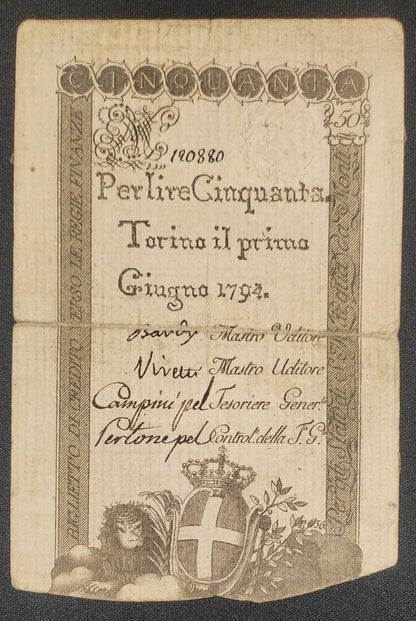 CINQUANTA
50
190880
Per lire Cinquanta.
Torino il primo
Giugno 1794.
Mastro Uditore
Vivetti Mastro Uditore
Campini pel Tesoriere Gener.
Pertone pel Control. della T. G.
BIGLIETTO DI CREDITO VERSO LE REGIE FINANZE